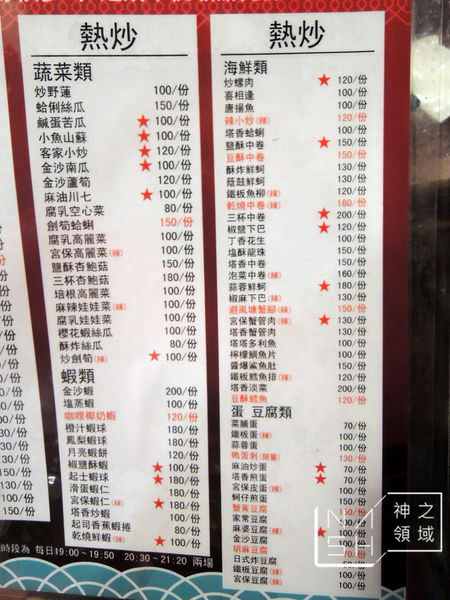 熱炒
蔬菜類
炒野蓮 100/份
蛤蜊絲瓜 150/份
鹹蛋苦瓜 ★ 100/份
小魚山蘇 ★ 100/份
客家小炒 ★ 120/份
金沙南瓜 ★ 100/份
金沙蘆筍 120/份
麻油川七 ★ 100/份
腐乳空心菜 80/份
劍筍蛤蜊 150/份
腐乳高麗菜 100/份
宮保高麗菜(辣) 100/份
鹽酥杏鮑菇 150/份
三杯杏鮑菇 180/份
培根高麗菜 100/份
麻辣娃娃菜(辣) 100/份
腐乳娃娃菜 100/份
櫻花蝦絲瓜 100/份
酥炸絲瓜 80/份
炒劍筍(辣) ★ 100/份
蝦類
金沙蝦 200/份
塩蒸蝦 100/份
咖哩椰奶蝦 120/份
橙汁蝦球 180/份
鳳梨蝦球 180/份
月亮蝦餅 120/份
椒鹽酥蝦 ★ 100/份
起士蝦球 ★ 180/份
滑蛋蝦仁 180/份
宮保蝦仁(辣) ★ 180/份
塔香炒蝦 100/份
起司香蕉蝦捲 80/份
乾燒鮮蝦(辣) ★ 100/份
熱炒
海鮮類
炒螺肉 ★ 120/份
喜相逢 100/份
唐揚魚 100/份
辣小炒(辣) 120/份
塔香蛤蜊 100/份
鹽酥中卷 ★ 150/份
豆酥中卷 150/份
酥炸鮮蚵 150/份
蔭鼓鮮蚵 150/份
鐵板魚柳(辣) 120/份
乾燒中卷(辣) 160/份
三杯中卷 ★ 200/份
椒鹽下巴 ★ 120/份
丁香花生 100/份
塩酥龍珠 150/份
塔香中卷 150/份
泡菜中卷(辣) 160/份
蒜蓉鮮蚵 ★ 180/份
椒麻下巴(辣) 130/份
避風塘蟹腳(辣) 150/份
宮保蟹管肉(辣) ★ 150/份
塔香蟹管肉 130/份
塔塔多利魚 100/份
檸檬鯛魚片 100/份
醬爆鯊魚肚 150/份
鐵板鱈魚排(辣) 120/份
塔香淡菜 200/份
豆酥鱈魚 120/份
蛋 豆腐類
菜脯蛋 70/份
鐵板蛋(辣) 100/份
蒜蓉蛋 100/份
鴨蛋刺(限量) 130/份
麻油炒蛋 ★ 70/份
塔香煎蛋 ★ 70/份
宮保皮蛋(辣) 100/份
蚵仔煎蛋 100/份
蟹黃豆腐 150/份
家常豆腐 100/份
麻婆豆腐(辣) ★ 100/份
金沙豆腐
胡麻豆腐
日式炸豆腐
鐵板豆腐(辣) 100/份
宮保豆腐(辣) 100/份
時段為 每日19:00~19:50 20:30~21:20 兩場
神之
領域